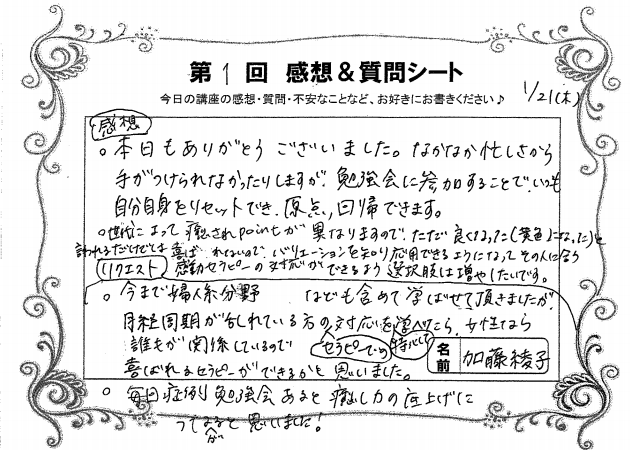 第1回 感想&質問シート
1/21(木)
今日の講座の感想・質問・不安なことなど、お好きにお書きください♪
感想
。本日もありがとうございました。なかなか忙しさから
手がつけられなかったりしますが、勉強会に参加することで、いつも
自分自身をリセットでき、原点回帰できます。
。世代によって癒されpointが異なりますので、ただ良くなった(黄色)になったと
言われるだけでは喜ばれないので、バリエーションを知り応用できるようになって その人に合う
リクエスト 感動セラピーの対応ができるよう選択肢は増やしたいです。
。今まで婦人系分野 なども含めて学ばせて頂きましたが、
月経周期が乱れている方の対応を学べたら、女性なら
誰もが関係しているので セラピーでの 特化して
喜ばれるセラピーができるかと思いました。
名前 加藤綾子
。毎日症例勉強会あると癒し力の底上げに
つながると思いました!